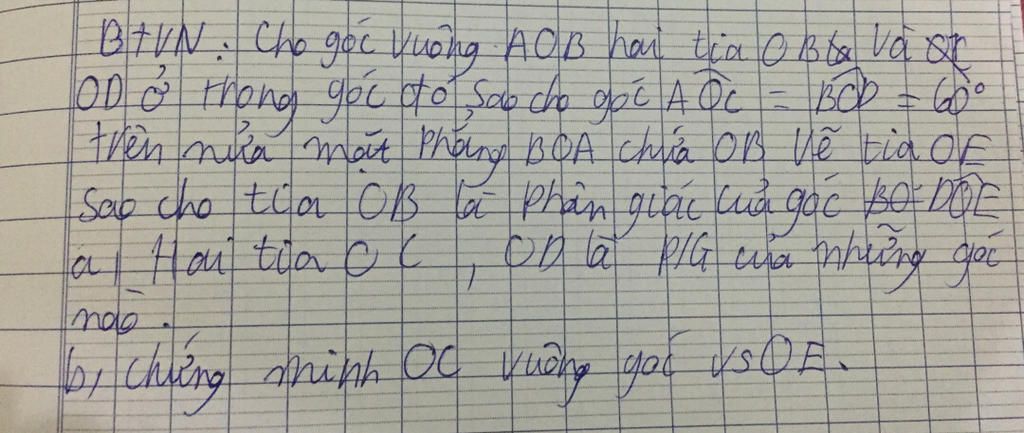 BTVN: Cho góc vuông AOB hai tia OB và OC
OD ở trong góc đó sao cho góc AOC = BOD = 60°
trên nửa mặt phẳng BOA chứa OB vẽ tia OE
Sao cho tia OB là phân giác của góc BO DOE
a, Hai tia OC, OD là P/G của những góc
nào.
b, chứng minh OC vuông góc vs OE.